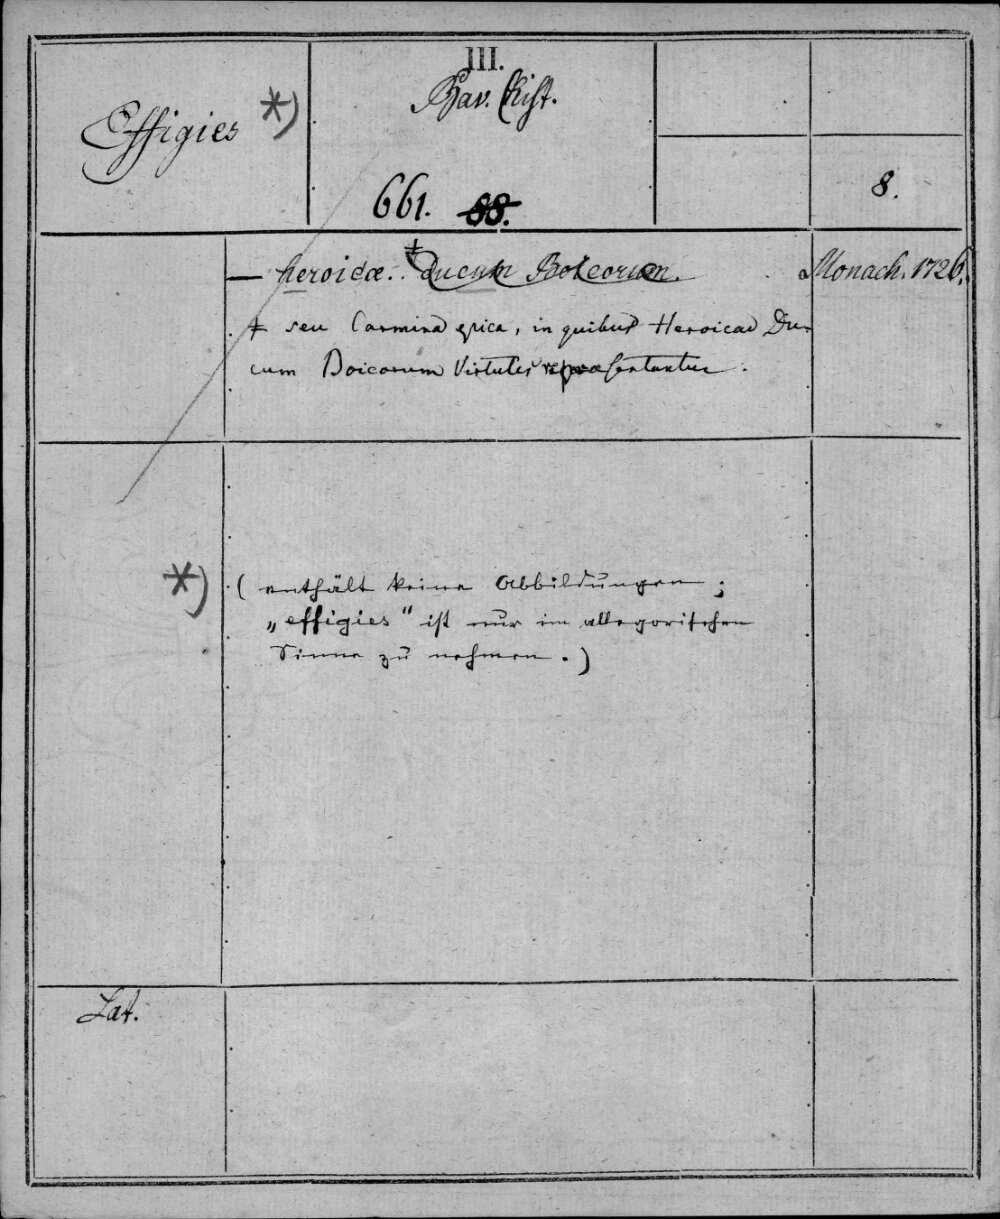 III.
Bav. Hist.
Effigies *)
661. 88.
8.
— heroicæ. ‡ Ducum Boicorum.
Monach. 1726.
‡ seu Carmina epica, in quibus Heroicae Du-
cum Boicorum Virtutes repraesentantur.
*) (enthält keine Abbildungen;
„effigies" ist nur im allegorischen
Sinne zu nehmen.)
Lat.